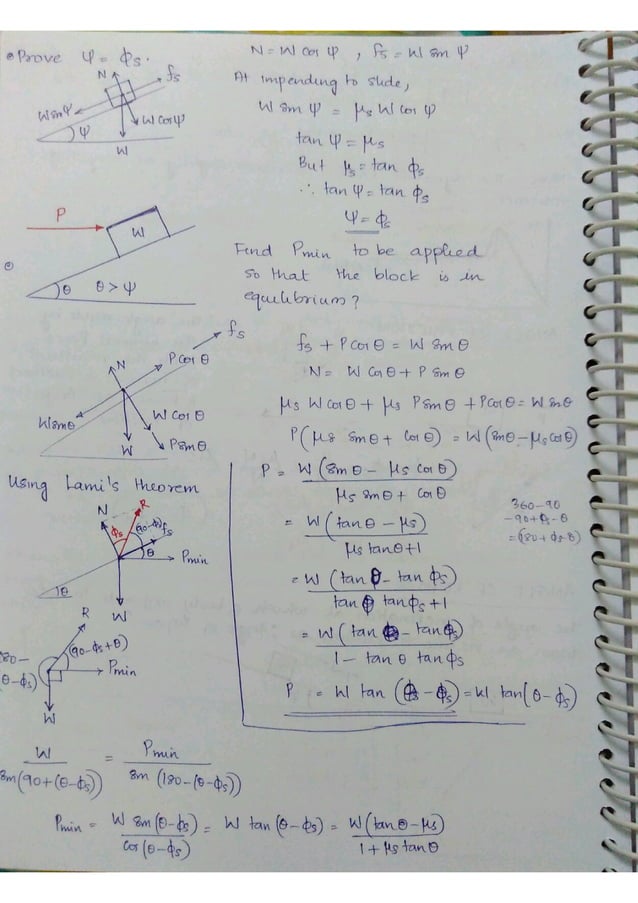 Prove ψ = ϕs.
N
fs
W sinψ
W cosψ
ψ
W
N = W cos ψ , fs = W sin ψ
At impending to slide,
W sin ψ = μs W cos ψ
tan ψ = μs
But μs = tan ϕs
∴ tan ψ = tan ϕs
ψ = ϕs
P
W
θ θ > ψ
Find Pmin to be applied
so that the block is in
equilibrium?
fs
N
P cos θ
W sinθ
W cos θ
P sin θ
W
θ
fs + P cos θ = W sin θ
N = W cos θ + P sin θ
μs W cos θ + μs P sin θ + P cos θ = W sin θ
P (μs sin θ + cos θ) = W (sin θ - μs cos θ)
Using Lami's theorem
N
R
ϕs
(90-ϕs)
fs
θ
Pmin
θ
W
P = W (sin θ - μs cos θ)
μs sin θ + cos θ
= W (tan θ - μs)
μs tan θ + 1
= W (tan θ - tan ϕs)
tan θ tan ϕs + 1
= W (tan θ - tan ϕs)
1 - tan θ tan ϕs
P = W tan (θ - ϕs) = W. tan(θ - ϕs)
360-90
-90+ϕs-θ
= (180+ϕs-θ)
R
(90-ϕs+θ)
180-
(θ-ϕs)
Pmin
W
W = Pmin
sin(90+(θ-ϕs)) sin (180-(θ-ϕs))
Pmin = W sin(θ-ϕs) = W tan (θ-ϕs) = W(tan θ - μs)
cos(θ-ϕs) 1 + μs tan θ